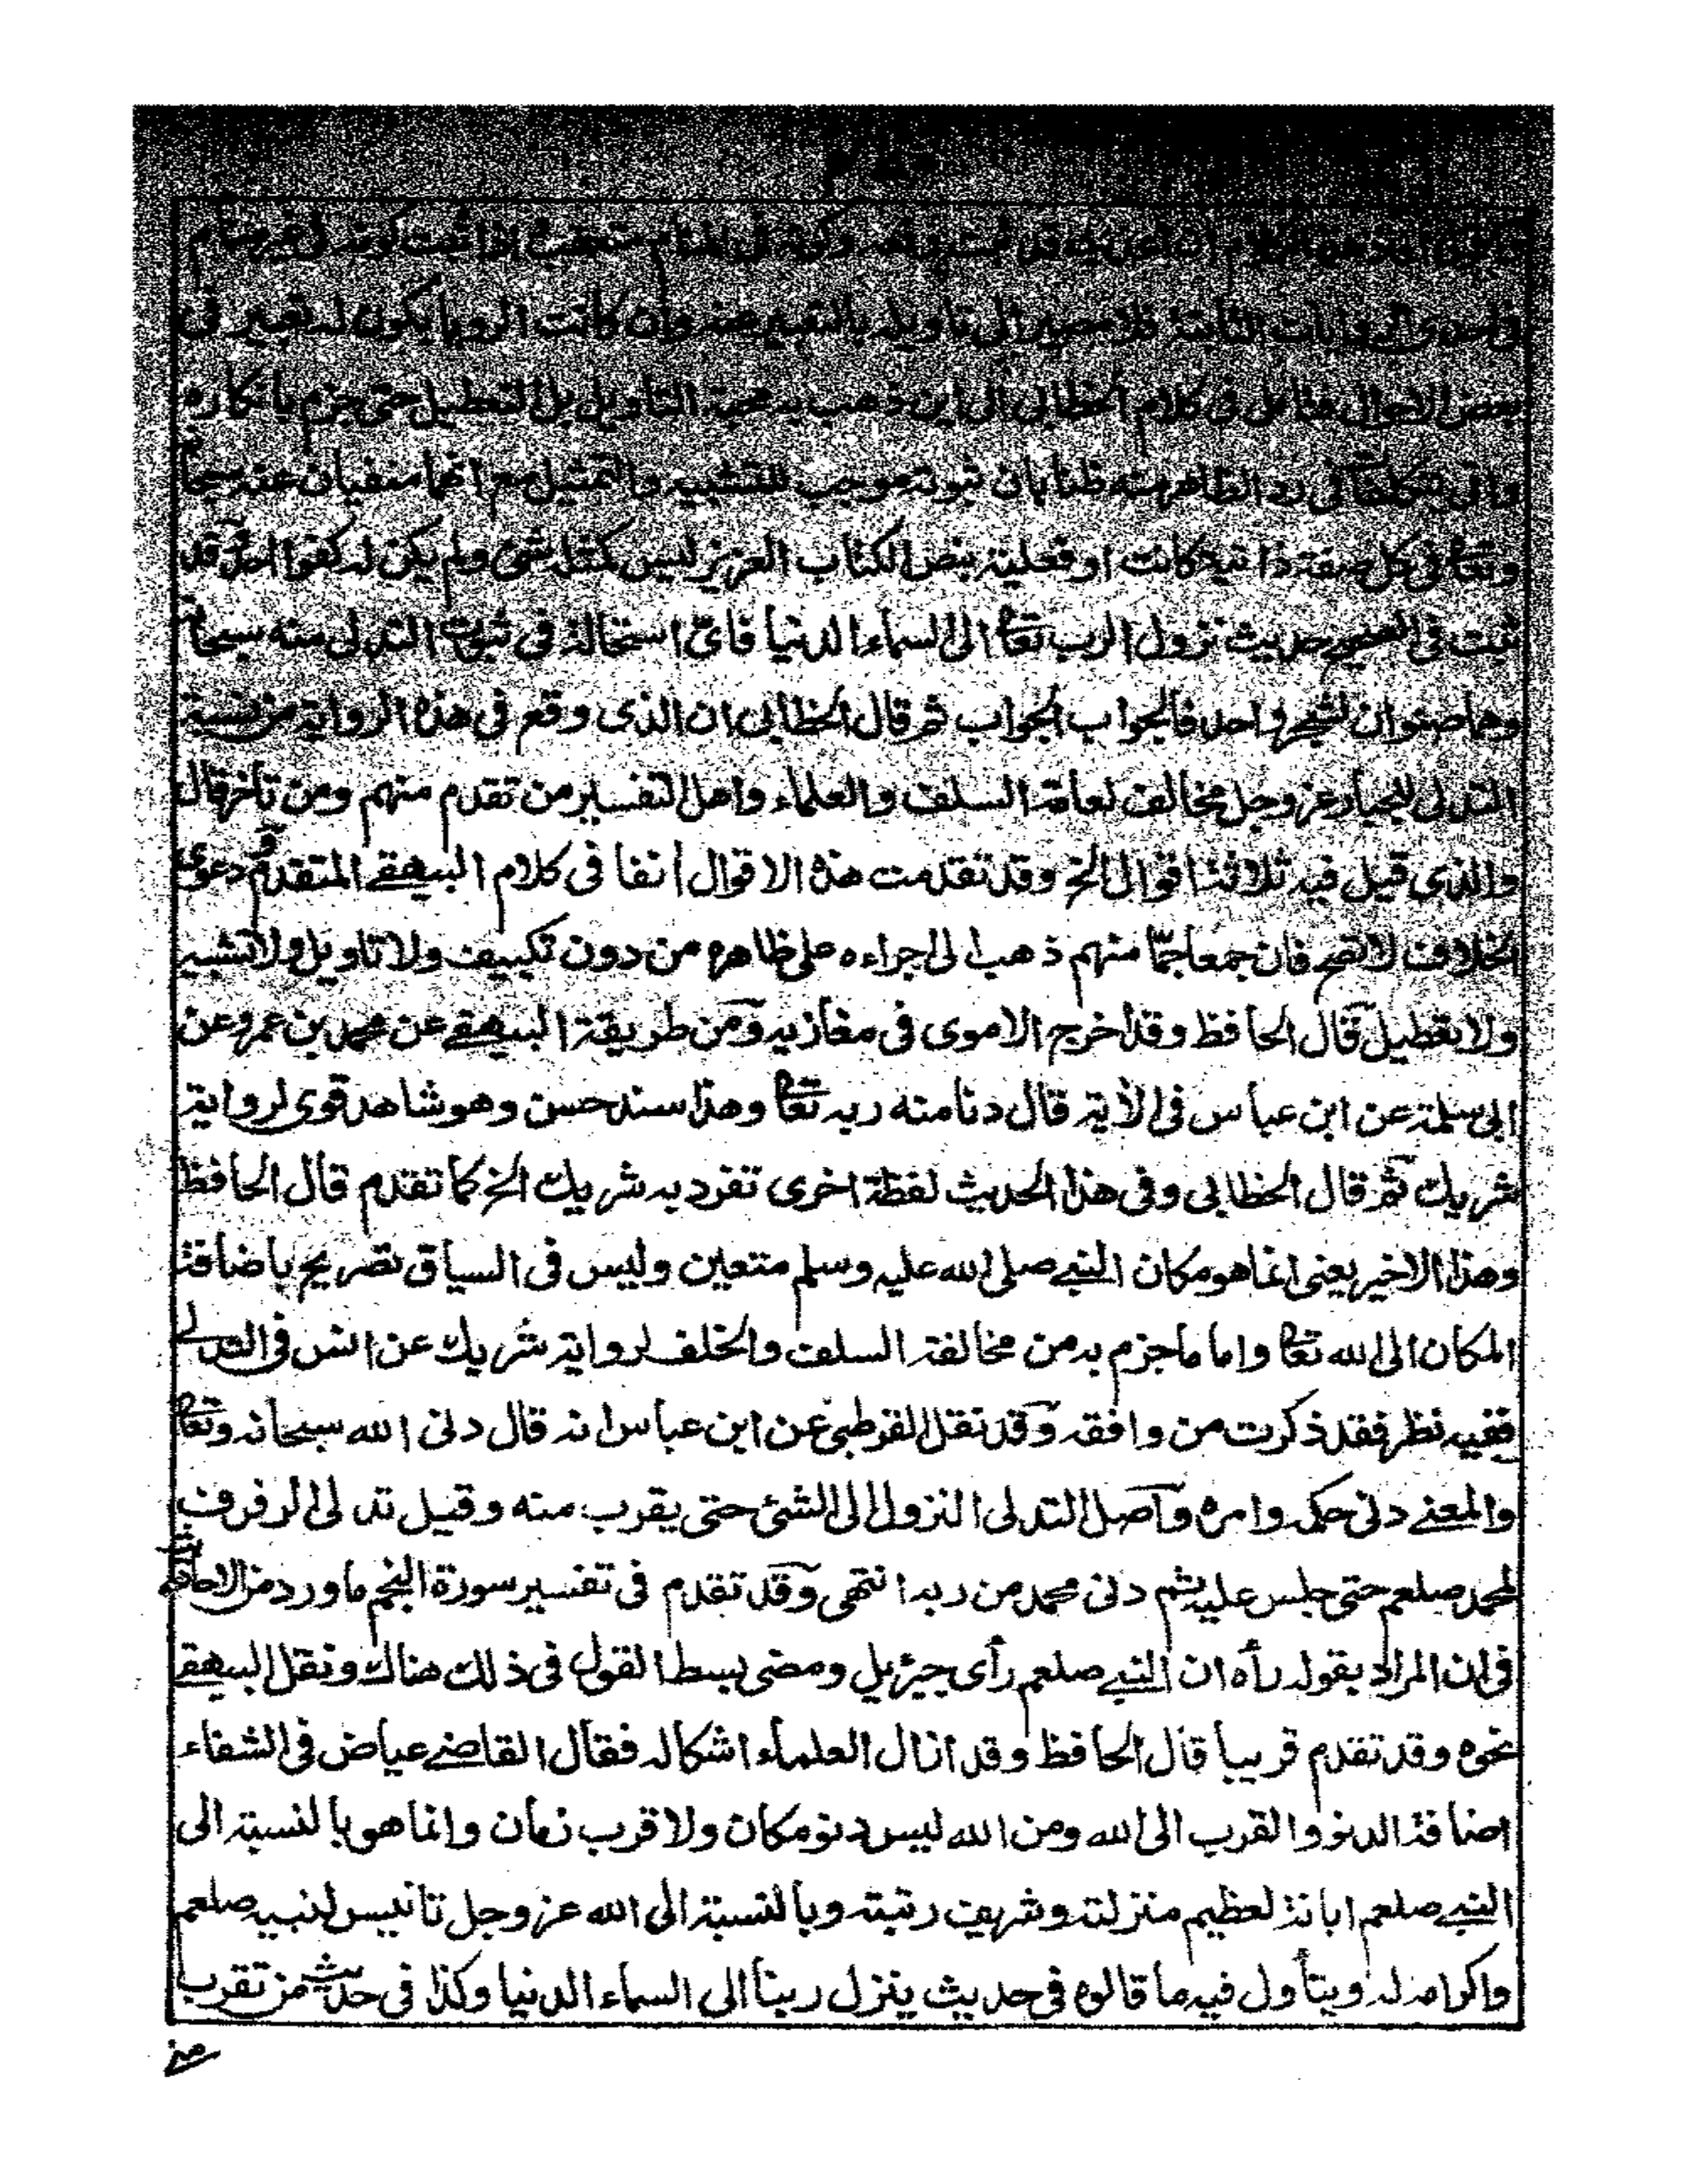 ان الحديث قد ثبت رفعه وكونه فى المنام اذا ثبت كونه فى غير منام
فى احدى الروايات الثابتة فلا مصير الى تاويله بالتعبير منه وان كانت الرويا يكون له تعبير فى
بعض الاحوال فتأمل فى كلام الخطابى الى اين ذهب به محبة التاويل بل التعطيل حتى جزم بانكاره
فى رد الظاهر منه ظنا بان ثبوته موجب للتشبيه والتمثيل مع انهما منفيان عنه سبحانه
وتعالى فى كل صفة ذاتية كانت او فعلية بنص الكتاب العزيز ليس كمثله شئ ولم يكن له كفوا احد وقد
ثبت فى الصحيح حديث نزول الرب تعالى الى السماء الدنيا فاى استحالة فى ثبوت التدلى منه سبحانه
وهما صنوان لشجر واحد فالجواب الجواب ثم قال الخطابى ان الذى وقع فى هذه الرواية من نسبة
التدلى للجبار عز وجل مخالف لعامة السلف والعلماء واهل التفسير من تقدم منهم ومن تأخر قال
والذى قيل فيه ثلاثة اقوال الخ وقد تقدمت هذه الاقوال أنفا فى كلام البيهقى المتقدم ودعوى
الخلاف لا تصح فان جمعا جما منهم ذهب الى اجراءه على ظاهره من دون تكييف ولا تاويل ولا تشبيه
ولا تعطيل قال الحافظ وقد اخرج الاموى فى مغازيه ومن طريقة البيهقى عن محمد بن عمرو عن
ابى سلمة عن ابن عباس فى الأية قال دنا منه ربه تعالى وهذا سند حسن وهو شاهد قوى لرواية
شريك ثم قال الخطابى وفى هذا الحديث لفظة اخرى تفرد به شريك الخ كما تقدم قال الحافظ
وهذا الاخير يعنى انما هو مكان النبى صلى الله عليه وسلم متعين وليس فى السياق تصريح باضافة
المكان الى الله تعالى واما ما جزم به من مخالفة السلف والخلف لرواية شريك عن انس فى التدلى
ففيه نظر فقد ذكرت من وافقه وقد نقل القرطبى عن ابن عباس انه قال دنى الله سبحانه وتعالى
والمعنى دنى حكمه وامره وأصل التدلى النزول الى الشئ حتى يقرب منه وقيل تدلى الرفرف
لمحمد صلعم حتى جلس عليه ثم دنى محمد من ربه انتهى وقد تقدم فى تفسير سورة النجم ما ورد من الاحاديث
فى ان المراد بقوله رأه ان النبى صلعم رأى جبرئيل ومضى بسط القول فى ذلك هناك ونقل البيهقى
نحوه وقد تقدم قريبا قال الحافظ وقد ازال العلماء اشكاله فقال القاضى عياض فى الشفاء
اضافة الدنو والقرب الى الله ومن الله ليس دنو مكان ولا قرب زمان وانما هو بالنسبة الى
النبى صلعم ابانة لعظيم منزلته وشريف رتبته وبالنسبة الى الله عز وجل تانيس لنبيه صلعم
واكرامه له ويتأول فيه ما قالوه فى حديث ينزل ربنا الى السماء الدنيا وكذا فى حديث من تقرب
منى